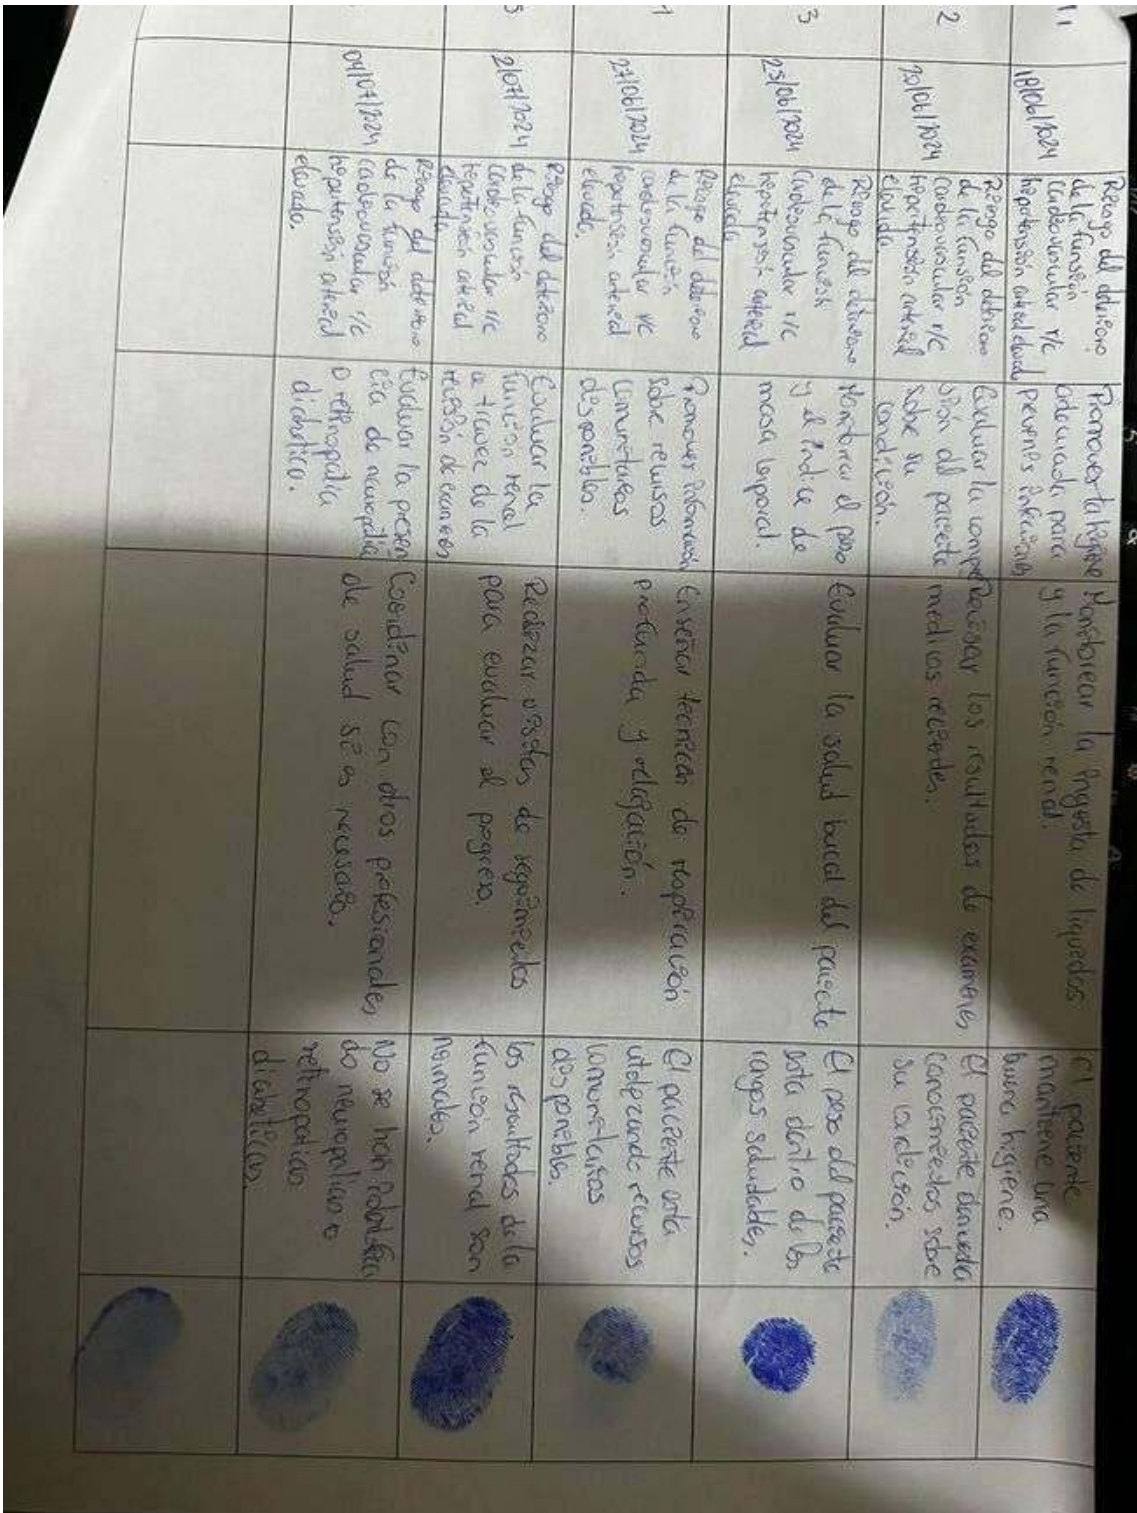 1.
18/06/2024
Riesgo del deterioro
de la función
cardiovascular r/c
hipertensión arterial elevada
Promover la higiene
adecuada para
prevenir infecciones
Monitorear la ingesta de liquidos
y la función renal.
El paciente
mantiene una
buena higiene.
2
20/06/2024
Riesgo del deterioro
de la función
cardiovascular r/c
hipertensión arterial
elevada.
Evaluar la compren
sión del paciente
sobre su
condición.
Revisar los resultados de examenes
medicos recientes.
El paciente demuestra
conocimientos sobre
su condición.
3
25/06/2024
Riesgo del deterioro
de la función
cardiovascular r/c
hipertensión arterial
elevada
Monitorear el peso
y el índice de
masa corporal.
Evaluar la salud bucal del paciente
El peso del paciente
esta dentro de los
rangos saludables.
27/06/2024
Riesgo del deterioro
de la función
cardiovascular r/c
hipertensión arterial
elevada.
Promover información
sobre recursos
comunitarios
disponibles.
Enseñar tecnicas de respiración
profunda y relajación.
El paciente esta
utilizando recursos
comunitarios
disponibles.
5
2/07/2024
Riesgo del deterioro
de la función
cardiovascular r/c
hipertensión arterial
elevada
Evaluar la
función renal
a travez de la
revisión de examenes
Realizar visitas de seguimientos
para evaluar el progreso.
Los resultados de la
función renal son
normales.
04/07/2024
Riesgo del deterioro
de la función
cardiovascular r/c
hipertensión arterial
elevada.
Evaluar la presen
cia de neuropatia
o retinopatia
diabetica.
Coordinar con otros profesionales
de salud si es necesario.
No se han identifica
do neuropaticas o
retinopaticas
diabeticas.